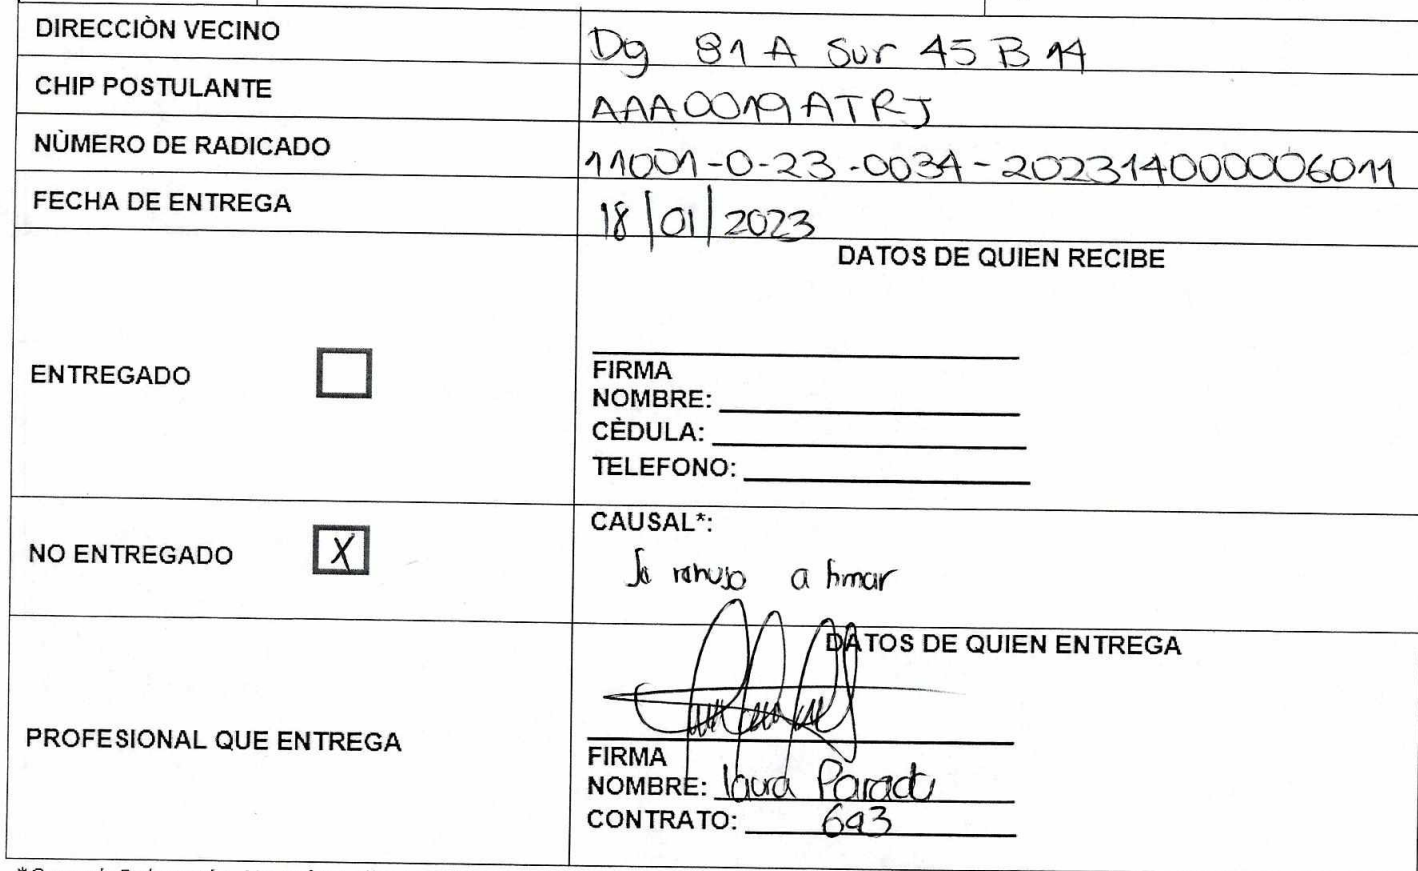 DIRECCIÒN VECINO Dg 81 A Sur 45 B 14
CHIP POSTULANTE AAA0019ATRJ
NÙMERO DE RADICADO 11001-0-23-0034-202314000006011
FECHA DE ENTREGA 18/01/2023
DATOS DE QUIEN RECIBE
ENTREGADO
FIRMA
NOMBRE:
CÈDULA:
TELEFONO:
NO ENTREGADO X
CAUSAL*:
Se rehuso a firmar
DATOS DE QUIEN ENTREGA
PROFESIONAL QUE ENTREGA
FIRMA
NOMBRE: laura
CONTRATO: 693